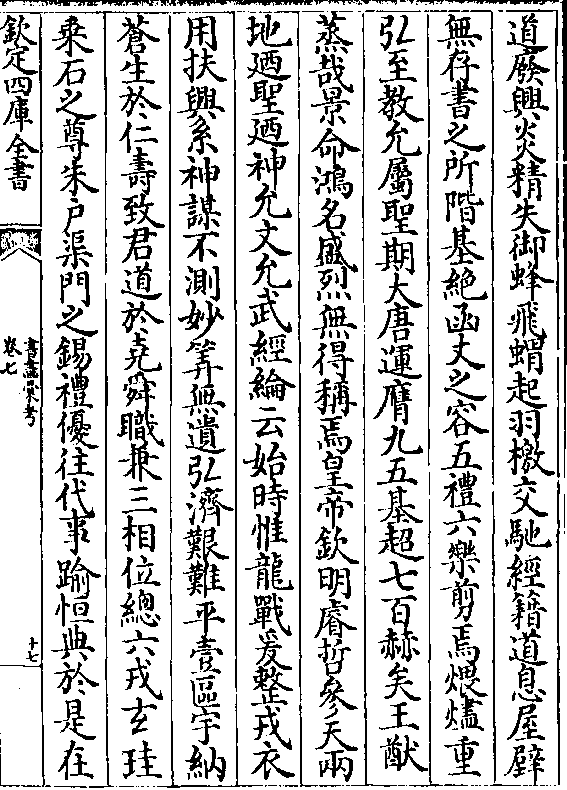 道廢興炎精失御蜂飛蝟起羽檄交馳經籍道息屋壁
無存書之所階基絶函丈之容五禮六樂剪焉煨燼重
弘至教允屬聖期大唐運膺九五基超七百赫矣王猷
蒸哉景命鴻名盛烈無得稱焉皇帝欽明睿哲參天兩
地廼聖廼神允文允武經綸云始時惟龍戰爰整戎衣
用扶興系神謀不測妙筭無遺弘濟艱難平壹區宇納
蒼生於仁壽致君道於堯舜職兼三相位總六戎玄珪
乘石之尊朱户渠門之錫禮優往代事踰恒典於是在
欽定四庫全書
書畫彚考
卷七
十七